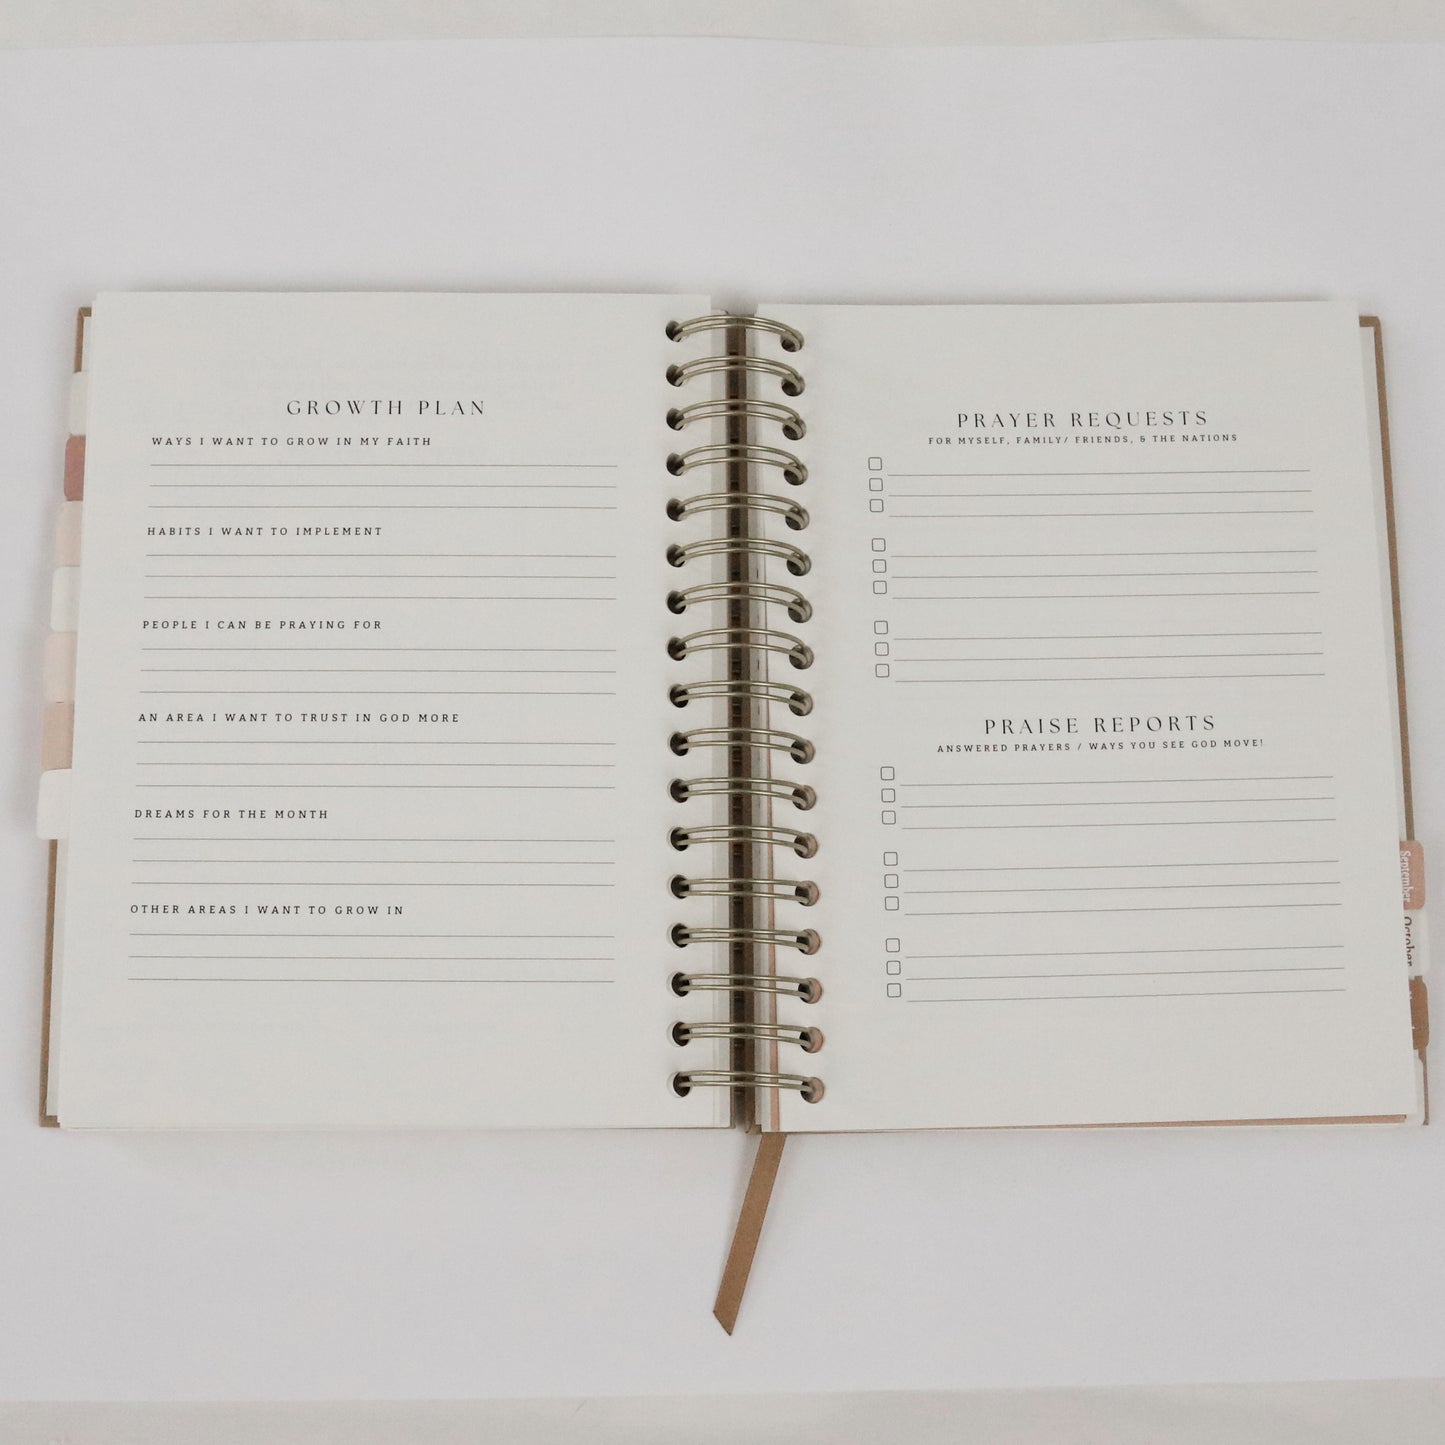 GROWTH PLAN
WAYS I WANT TO GROW IN MY FAITH
HABITS I WANT TO IMPLEMENT
PEOPLE I CAN BE PRAYING FOR
AN AREA I WANT TO TRUST IN GOD MORE
DREAMS FOR THE MONTH
OTHER AREAS I WANT TO GROW IN
PRAYER REQUESTS
FOR MYSELF, FAMILY/ FRIENDS, & THE NATIONS
PRAISE REPORTS
ANSWERED PRAYERS / WAYS YOU SEE GOD MOVE!
September
October